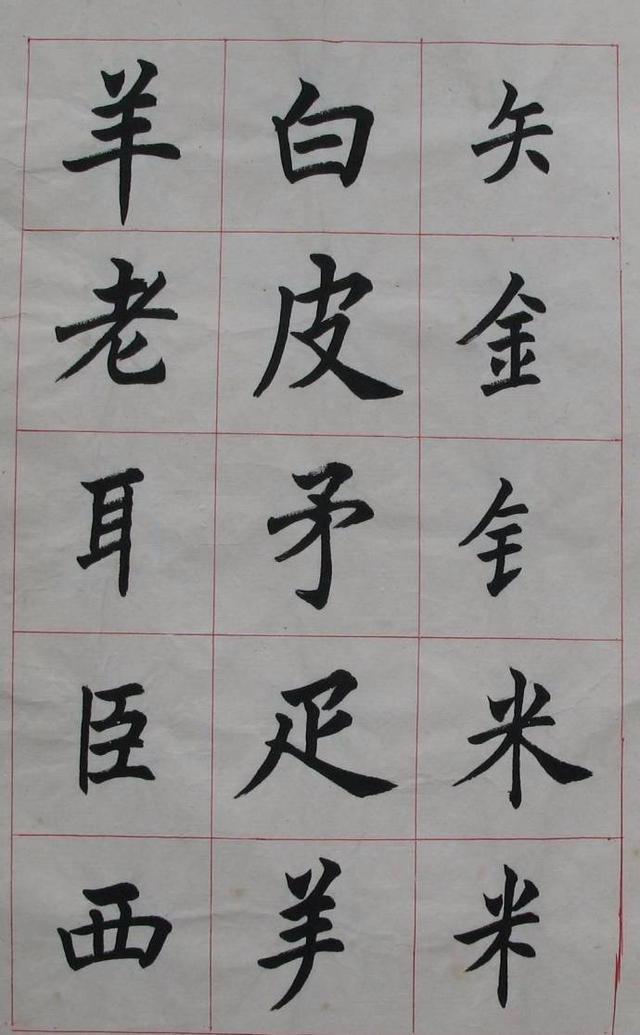 矢金米米
白皮矛疋⺶
羊老耳臣西